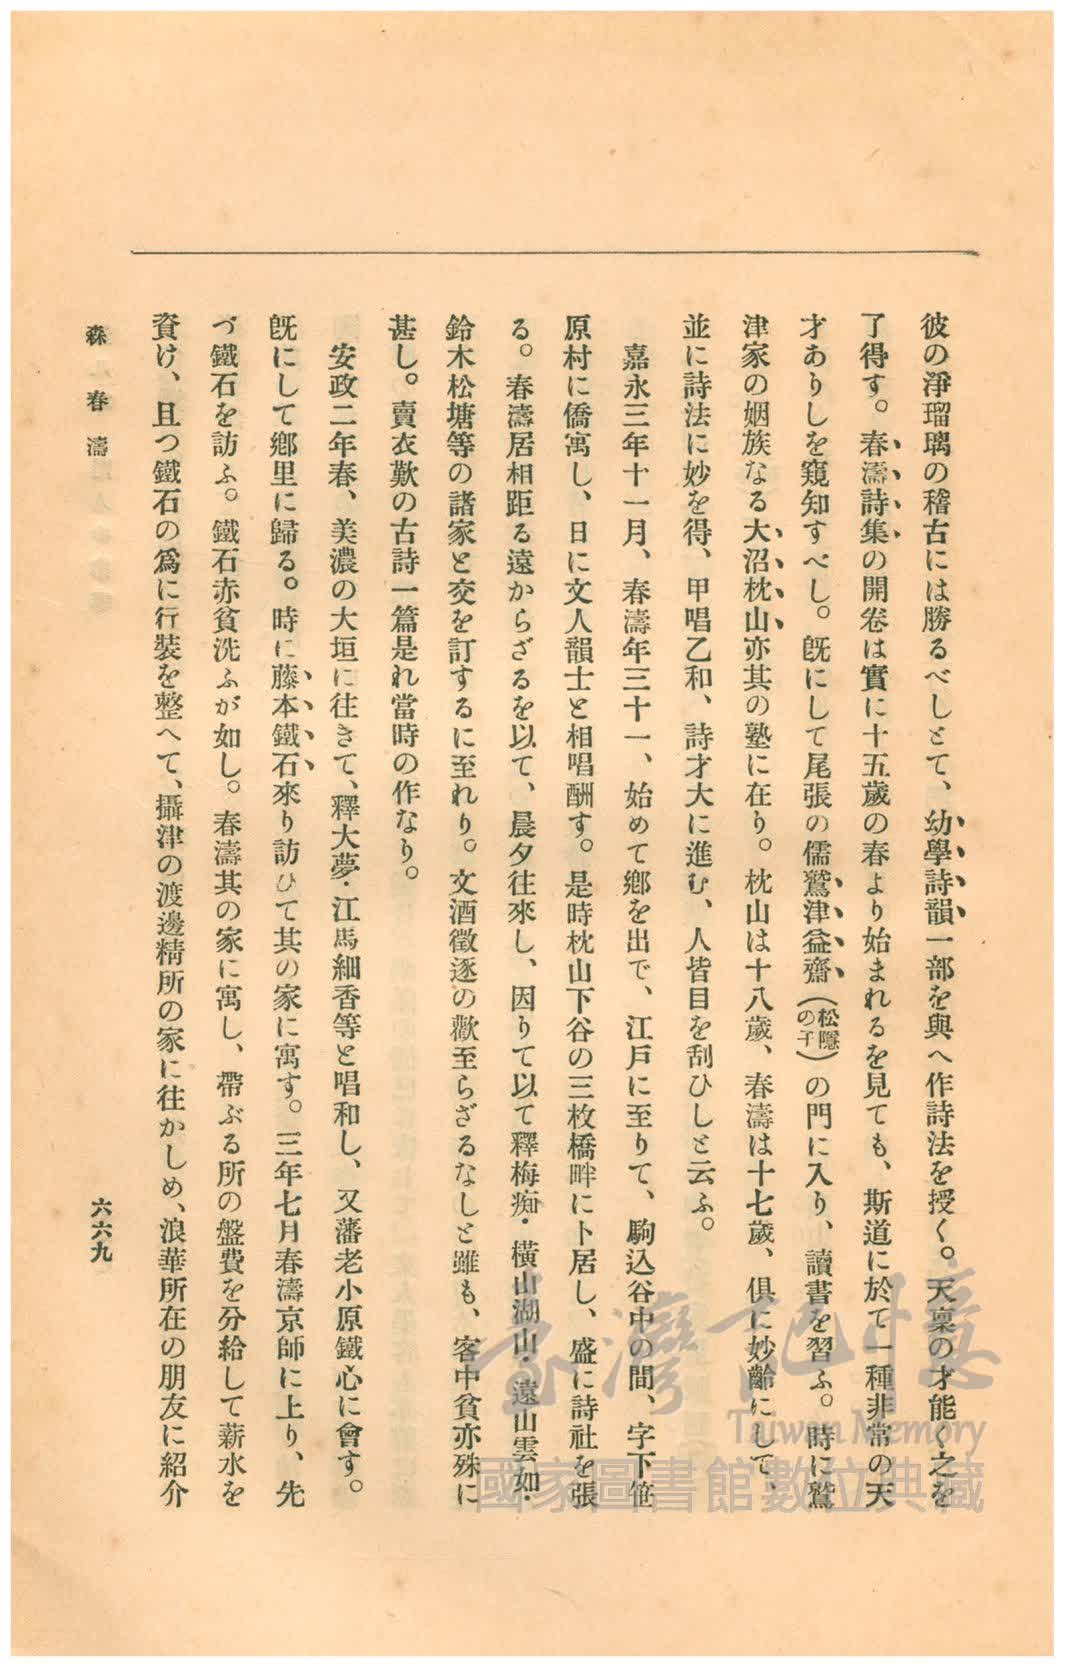 彼の淨瑠璃の稽古には勝るべしとて、幼學詩韻一部を與へ作詩法を授く。天稟の才能く之を
了得す。春濤詩集の開卷は實に十五歲の春より始まれるを見ても、斯道に於て一種非常の天
才ありしを窺知すべし。旣にして尾張の儒鷲津益齋（松隱の子）の門に入り、讀書を習ふ。時に鷲
津家の姻族なる大沼枕山亦其の塾に在り。枕山は十八歲、春濤は十七歲、俱に妙齡にして、
並に詩法に妙を得、甲唱乙和、詩才大に進む、人皆目を刮ひしと云ふ。
嘉永三年十一月、春濤年三十一、始めて鄕を出で、江戶に至りて、駒込谷中の間、字下笹
原村に僑寓し、日に文人韻士と相唱酬す。是時枕山下谷の三枚橋畔に卜居し、盛に詩社を張
る。春濤居相距る遠からざるを以て、晨夕往來し、因りて以て釋梅痴・橫山湖山・遠山雲如・
鈴木松塘等の諸家と交を訂するに至れり。文酒徵逐の歡至らざるなしと雖も、客中貧亦殊に
甚し。賣衣歎の古詩一篇是れ當時の作なり。
安政二年春、美濃の大垣に往きて、釋大夢・江馬細香等と唱和し、又藩老小原鐵心に會す。
旣にして鄕里に歸る。時に藤本鐵石來り訪ひて其の家に寓す。三年七月春濤京師に上り、先
づ鐵石を訪ふ。鐵石赤貧洗ふが如し。春濤其の家に寓し、帶ぶる所の盤費を分給して薪水を
資け、且つ鐵石の爲に行裝を整へて、攝津の渡邊精所の家に往かしめ、浪華所在の朋友に紹介
森春濤
六六九
臺灣記憶
Taiwan Memory
國家圖書館數位典藏